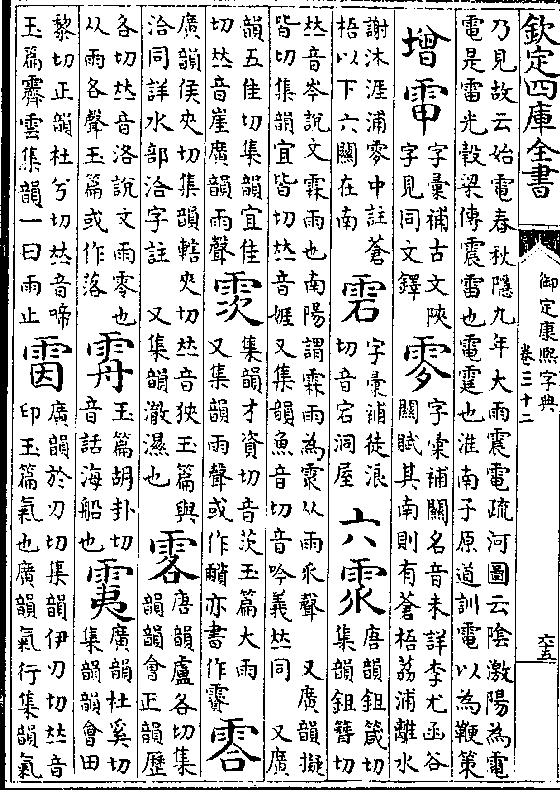 欽定四庫全書
御定康熙字典
卷三十二
六十五
乃見故云始電春秋隱九年大雨震電疏河圖云陰激陽為電
電是雷光穀梁傳震雷也電霆也淮南子原道訓電以為鞭策
增
字彙補古文陝
字見同文鐸
字彙補關名音未詳李尤函谷
關賦其南則有蒼梧荔浦離水
謝沐涯浦零中註蒼
梧以下六關在南
字彙補徒浪
切音宕洞屋
六
唐韻鉏箴切
集韻鉏簪切
𠀤音岑說文霖雨也南陽謂霖雨為从雨乑聲 又廣韻擬
皆切集韻宜皆切𠀤音娾又集韻魚音切音吟義𠀤同 又廣
韻五佳切集韻宜佳
切𠀤音崖廣韻雨聲
集韻才資切音茨玉篇大雨
又集韻雨聲或作亦書作
廣韻侯夾切集韻轄夾切𠀤音狹玉篇與
洽同詳水部洽字註 又集韻澈濕也
唐韻盧各切集
韻韻會正韻歷
各切𠀤音洛說文雨零也
从雨各聲玉篇或作落
玉篇胡卦切
音話海船也
廣韻杜奚切
集韻韻會田
黎切正韻杜兮切𠀤音啼
玉篇霽雲集韻一曰雨止
廣韻於刃切集韻伊刃切𠀤音
印玉篇氣也廣韻氣行集韻氣